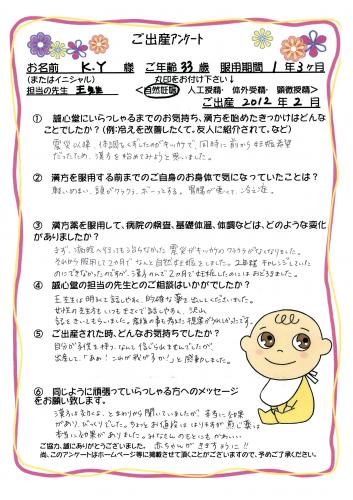 ご出産アンケート
お名前 K.Y 様 ご年齢 33 歳 服用期間 1年3ヶ月
(またはイニシャル) 丸印をお付け下さい↓
担当の先生 王先生 <自然妊娠・人工授精・体外受精・顕微授精>
ご出産 2012年 2月
① 誠心堂にいらっしゃるまでのお気持ち、漢方を始めたきっかけはどんな
ことでしたか?(例:冷えを改善したくて。友人に紹介されて。など)
震災以降、体調をくずしたのがキッカケで、同時に前から妊娠希望
だったため、漢方を始めてみようと思いました。
② 漢方を服用する前までのご自身のお身体で気になっていたことは?
軽いめまい、頭がクラクラ、ボーっとする。胃腸が悪って、冷え症。
③ 漢方薬を服用して、病院の検査、基礎体温、体調などは、どのような変化
がありましたか?
まず、病院へ行っても治らなかった震災がキッカケのクラクラがなくなりました。
それから服用して2ヶ月でなんと自然妊娠をしました。2年程チャレンジしていた
のにできなかったのですが、漢方のんで2ヶ月で妊娠したのにはおどろきました。
④ 誠心堂の担当の先生とのご相談はいかがでしたか?
王先生は明るくて話しやすく、的確な薬を出してくださいました。
女性の先生方もいつもきさくで話しやすく、沢山
話をきいてもらいました。
⑤ ご出産された時、どんなお気持ちでしたか?
自分が子供を持つ、なんて信じられませんでしたが、
出産して、「あぁ!これが我が子か!」と感動しました。
⑥ 同じように頑張っていらっしゃる方へのメッセージ
をお願い致します。
漢方は効くよ、とまわりから聞いていましたが、本当に効果
があり、びっくりでした。ちょっとお値段ははりますが煎じ薬は
本当に効果がありました。みなさんのもとにもかわいい
赤ちゃんがきますように!!
ご協力、誠にありがとうございました。
尚、このアンケートはホームページ等に掲載させて頂くことがございますので、予めご了承ください。